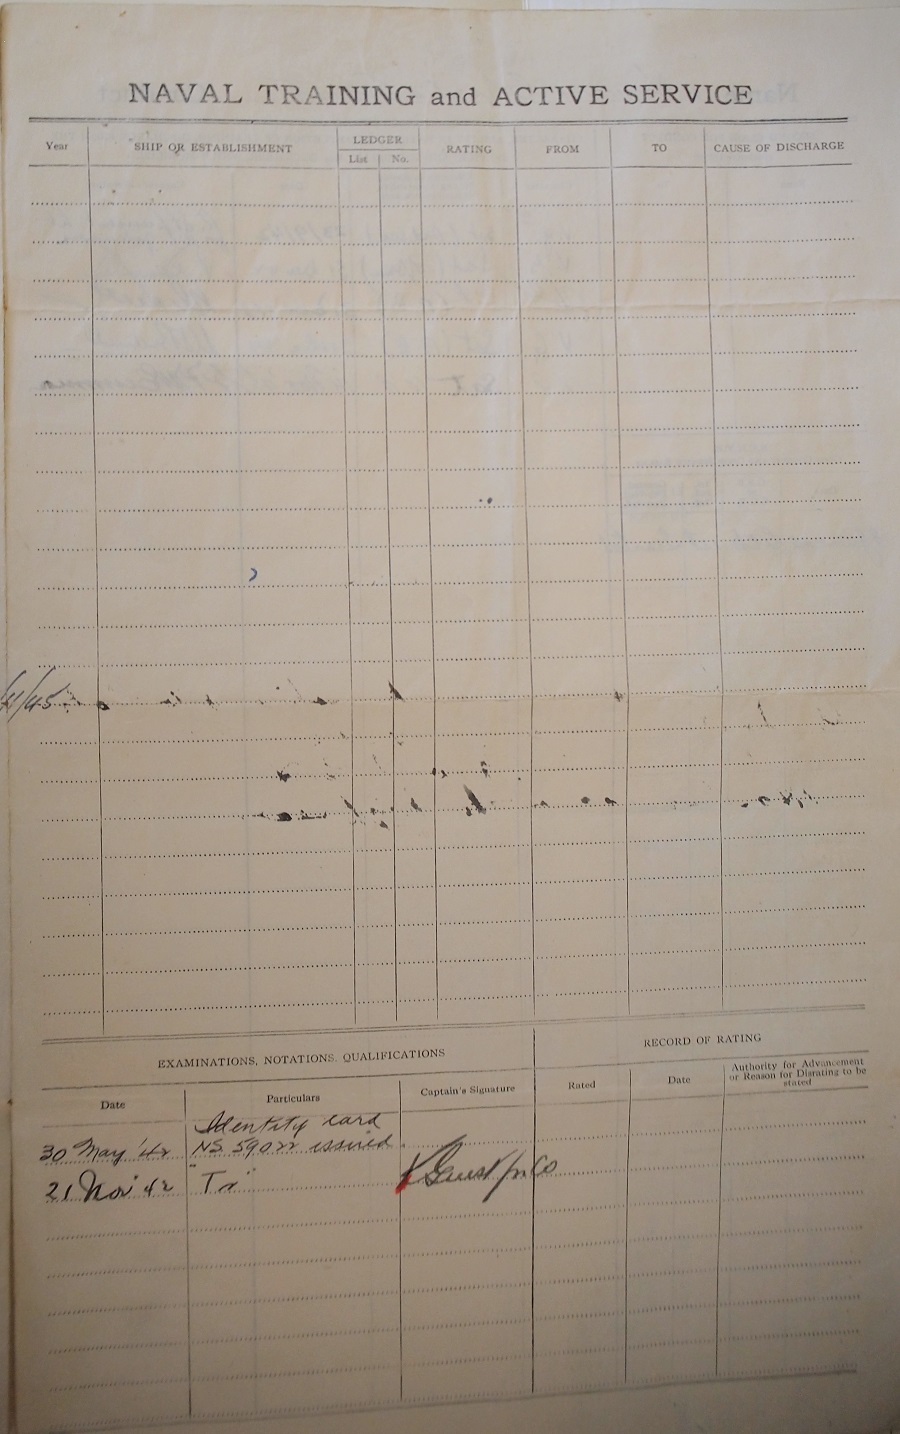 NAVAL TRAINING and ACTIVE SERVICE
Year
SHIP OR ESTABLISHMENT
LEDGER
List
No.
RATING
FROM
TO
CAUSE OF DISCHARGE
4/45
EXAMINATIONS, NOTATIONS, QUALIFICATIONS
RECORD OF RATING
Date
Particulars
Captain's Signature
Rated
Date
Authority for Advancement
or Reason for Disrating to be
stated
Identity card
30 May '42 NS 59022 issued.
21 Nov '42 "Ta"